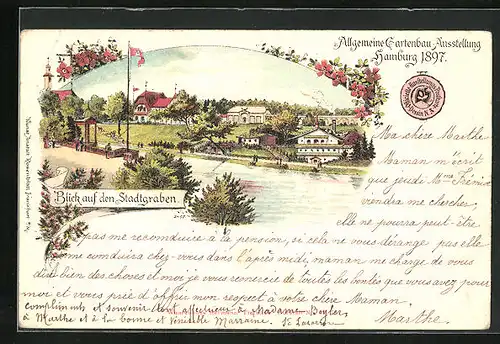 Allgemeine Gartenbau-Ausstellung
Hamburg 1897.
Blick auf den Stadtgraben.
Ma chère Marthe
Maman m'écrit
que jeudi Mme
viendra me chercher,
elle ne pourra peut-être
pas me reconduire à la pension, si cela ne vous dérange pas elle
me conduira chez-vous dans l'après midi, maman me charge de vous
dire bien des choses et moi je vous remercie de toutes les bontés que vous avez pour
moi et vous prie d'offrir mon respect à votre chère Maman.
compliments et souvenir affectueux à Madame
à Marthe et à la bonne et vénérable Marraine.
Marthe